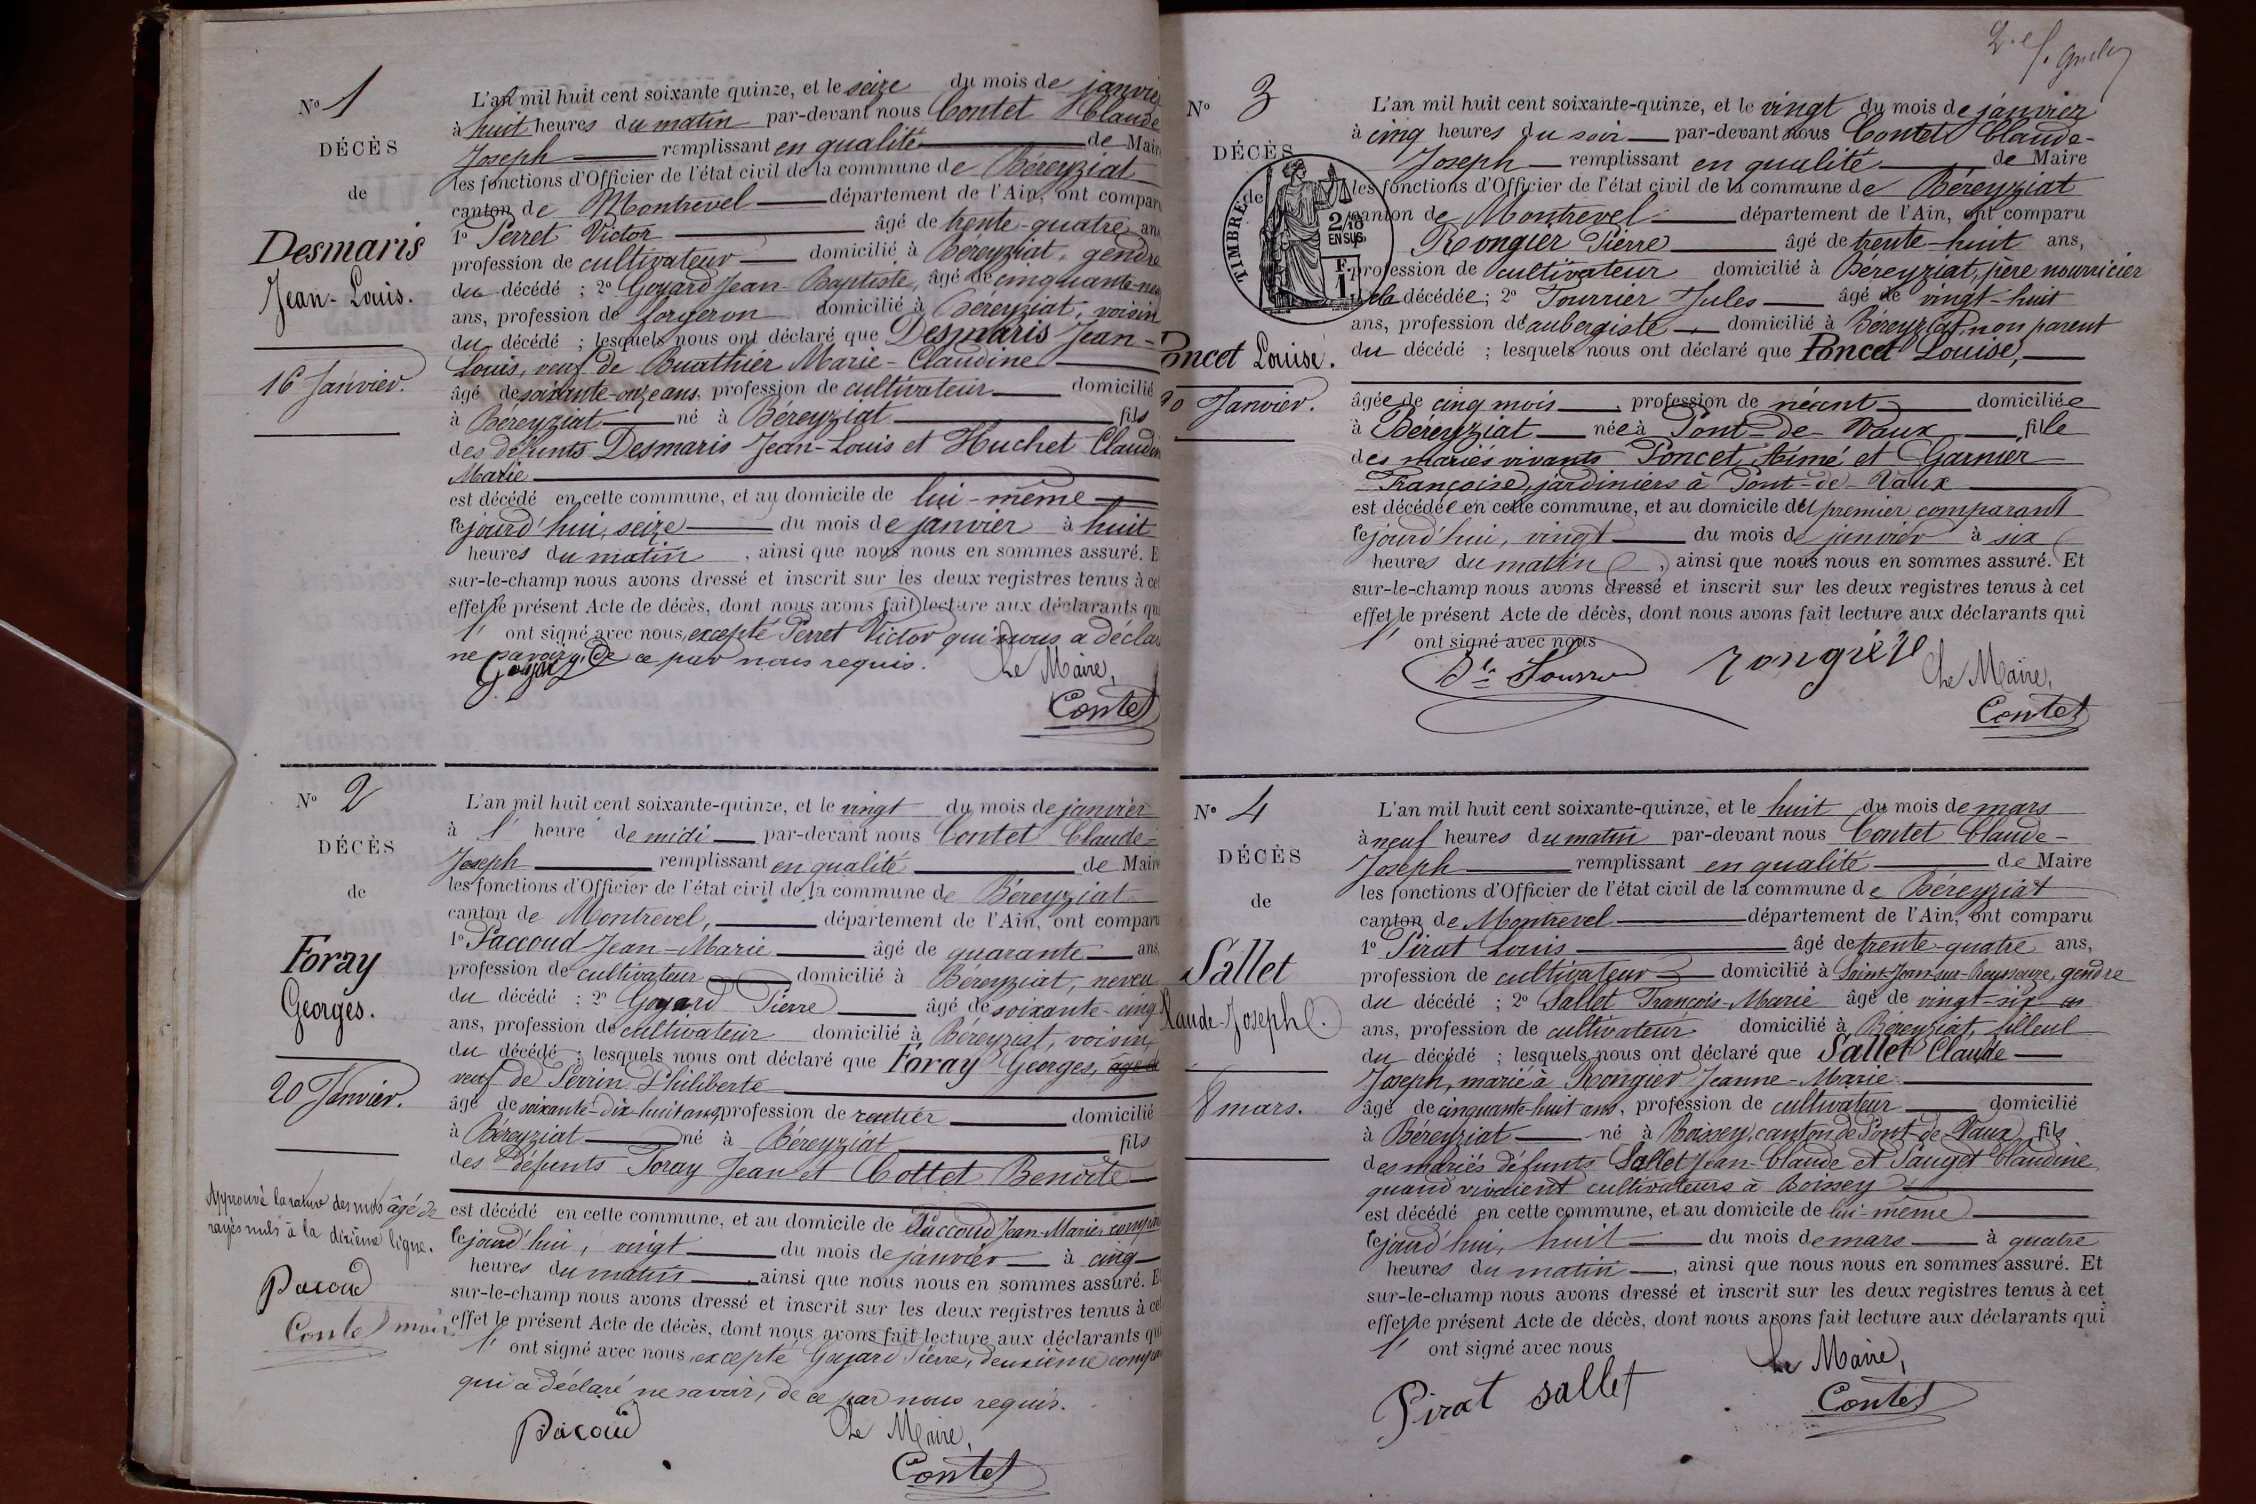 N° 1
DÉCÈS
de
Desmaris
Jean-Louis.
16 Janvier.
L'an mil huit cent soixante quinze, et le seize du mois de janvier
à huit heures du matin par-devant nous Contet Claude
Joseph remplissant en qualité de Maire
les fonctions d'Officier de l'état civil de la commune de Béreyziat
canton de Montrevel département de l'Ain, ont compar
1° Perret Victor âgé de trente-quatre ans
profession de cultivateur domicilié à Béreyziat, gendre
du décédé ; 2° Goyard Jean-Baptiste, âgé de cinquante-
ans, profession de forgeron domicilié à Béreyziat, voisin
du décédé ; lesquels nous ont déclaré que Desmaris Jean-
Louis, veuf de Buathier Marie-Claudine
âgé de soixante-onze ans, profession de cultivateur domicilié
à Béreyziat né à Béreyziat fils
des défunts Desmaris Jean-Louis et Huchet Claudin
Marie
est décédé en cette commune, et au domicile de lui-même
cejourd'hui, seize du mois de janvier à huit
heures du matin, ainsi que nous nous en sommes assuré. E
sur-le-champ nous avons dressé et inscrit sur les deux registres tenus à ce
effet le présent Acte de décès, dont nous avons fait lecture aux déclarants qu
ont signé avec nous, excepté Perret Victor qui nous a déclar
ne savoir, de ce par nous requis.
Goyard Le Maire,
Contet
N° 2
DÉCÈS
de
Foray
Georges.
20 Janvier.
Approuvé la rature des mots âgé de
rayés nuls à la dixième ligne.
Pacoud
Contet maire
L'an mil huit cent soixante-quinze, et le vingt du mois de janvier
à 1 heure de midi par-devant nous Contet Claude-
Joseph remplissant en qualité de Maire
les fonctions d'Officier de l'état civil de la commune de Béreyziat
canton de Montrevel, département de l'Ain, ont comparu
1° Paccoud Jean-Marie âgé de quarante ans
profession de cultivateur domicilié à Béreyziat, neveu
du décédé ; 2° Goyard Pierre âgé de soixante-cinq
ans, profession de cultivateur domicilié à Béreyziat, voisin
du décédé ; lesquels nous ont déclaré que Foray Georges, âgé de
veuf de Perrin Philiberte
âgé de soixante-dix-huit ans, profession de rentier domicilié
à Béreyziat né à Béreyziat fils
des défunts Foray Jean et Cottet Benoite
est décédé en cette commune, et au domicile de Paccoud Jean-Marie, compar
cejourd'hui, vingt du mois de janvier à cinq
heures du matin, ainsi que nous nous en sommes assuré. E
sur-le-champ nous avons dressé et inscrit sur les deux registres tenus à cet
effet le présent Acte de décès, dont nous avons fait lecture aux déclarants qui
ont signé avec nous, excepté Goyard Pierre, deuxième compar
qui a déclaré ne savoir, de ce par nous requis.
Pacoud Le Maire,
Contet
2e f.
N° 3
DÉCÈS
de
TIMBRE
2/10
EN SUS
Poncet Louise.
20 Janvier.
L'an mil huit cent soixante-quinze, et le vingt du mois de janvier
à cinq heures du soir par-devant nous Contet Claude-
Joseph remplissant en qualité de Maire
les fonctions d'Officier de l'état civil de la commune de Béreyziat
canton de Montrevel département de l'Ain, ont comparu
Rongier Pierre âgé de trente-huit ans,
profession de cultivateur domicilié à Béreyziat, père nourricier
de la décédée ; 2° Fourrier Jules âgé de vingt-huit
ans, profession d'aubergiste, domicilié à Béreyziat, non parent
du décédé ; lesquels nous ont déclaré que Poncet Louise,
âgée de cinq mois, profession de néant domiciliée
à Béreyziat née à Pont-de-Vaux fille
des mariés vivants Poncet Aimé et Garnier
Françoise, jardiniers à Pont-de-Vaux
est décédée en cette commune, et au domicile du premier comparant
cejourd'hui, vingt du mois de janvier à six
heures du matin, ainsi que nous nous en sommes assuré. Et
sur-le-champ nous avons dressé et inscrit sur les deux registres tenus à cet
effet le présent Acte de décès, dont nous avons fait lecture aux déclarants qui
ont signé avec nous
rongier Le Maire,
Contet
N° 4
DÉCÈS
de
Sallet
Claude-Joseph.
8 mars.
L'an mil huit cent soixante-quinze, et le huit du mois de mars
à neuf heures du matin par-devant nous Contet Claude-
Joseph remplissant en qualité de Maire
les fonctions d'Officier de l'état civil de la commune de Béreyziat
canton de Montrevel département de l'Ain, ont comparu
1° Pirat Louis âgé de trente-quatre ans,
profession de cultivateur domicilié à Saint-Jean-sur-Reyssouze, gendre
du décédé ; 2° Sallet François-Marie âgé de vingt-six
ans, profession de cultivateur domicilié à Béreyziat, filleul
du décédé ; lesquels nous ont déclaré que Sallet Claude
Joseph, marié à Rongier Jeanne-Marie
âgé de cinquante-huit ans, profession de cultivateur domicilié
à Béreyziat né à Boissey, canton de Pont-de-Vaux, fils
des mariés défunts Sallet Jean-Claude et Sauget Claudine
quand vivaient cultivateurs à Boissey
est décédé en cette commune, et au domicile de lui-même
cejourd'hui, huit du mois de mars à quatre
heures du matin, ainsi que nous nous en sommes assuré. Et
sur-le-champ nous avons dressé et inscrit sur les deux registres tenus à cet
effet le présent Acte de décès, dont nous avons fait lecture aux déclarants qui
ont signé avec nous
Pirat Sallet Le Maire,
Contet